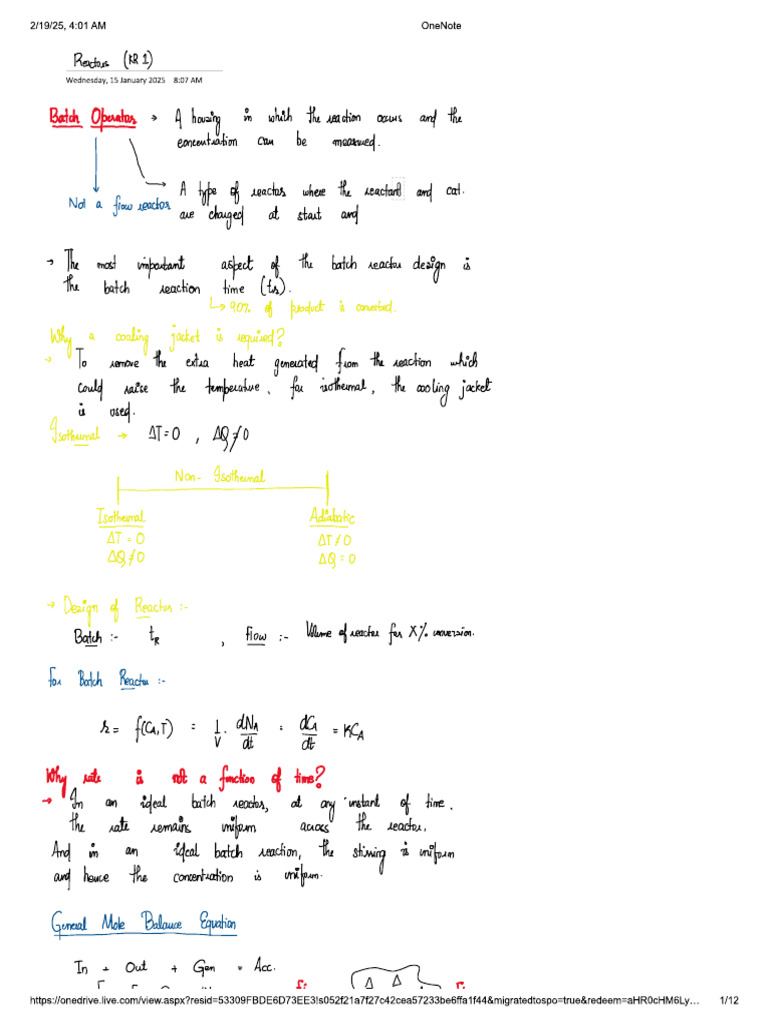 2/19/25, 4:01 AM OneNote
Reactors (KR 1)
Wednesday, 15 January 2025 8:07 AM
Batch Operator → A housing in which the reaction occurs and the
concentration can be measured.
A type of reactor where the reactant and cat.
Not a flow reactor
are charged at start and
→ The most important aspect of the batch reactor design is
the batch reaction time (tR).
↳ 90% of product is converted.
Why a cooling jacket is required?
→ To remove the extra heat generated from the reaction which
could raise the temperature. For isothermal, the cooling jacket
is used.
Isothermal → ΔT=0 , ΔQ≠0
Non-Isothermal
Isothermal Adiabatic
ΔT = 0 ΔT≠0
ΔQ≠0 ΔQ = 0
→ Design of Reactor :-
Batch :- tR , Flow :- Volume of reactor for X% conversion.
For Batch Reactor :-
r = f(CA,T) = 1/V . dNA/dt = dCA/dt = KCA
Why rate is not a function of time?
→ In an ideal batch reactor, at any instant of time.
the rate remains uniform across the reactor.
And in an ideal batch reaction, the stirring is uniform
and hence the concentration is uniform.
General Mole Balance Equation
In + Out + Gen = Acc.
https://onedrive.live.com/view.aspx?resid=53309FBDE6D73EE3!s052f21a7f27c42cea57233be6ffa1f44&migratedtospo=true&redeem=aHR0cHM6Ly… 1/12